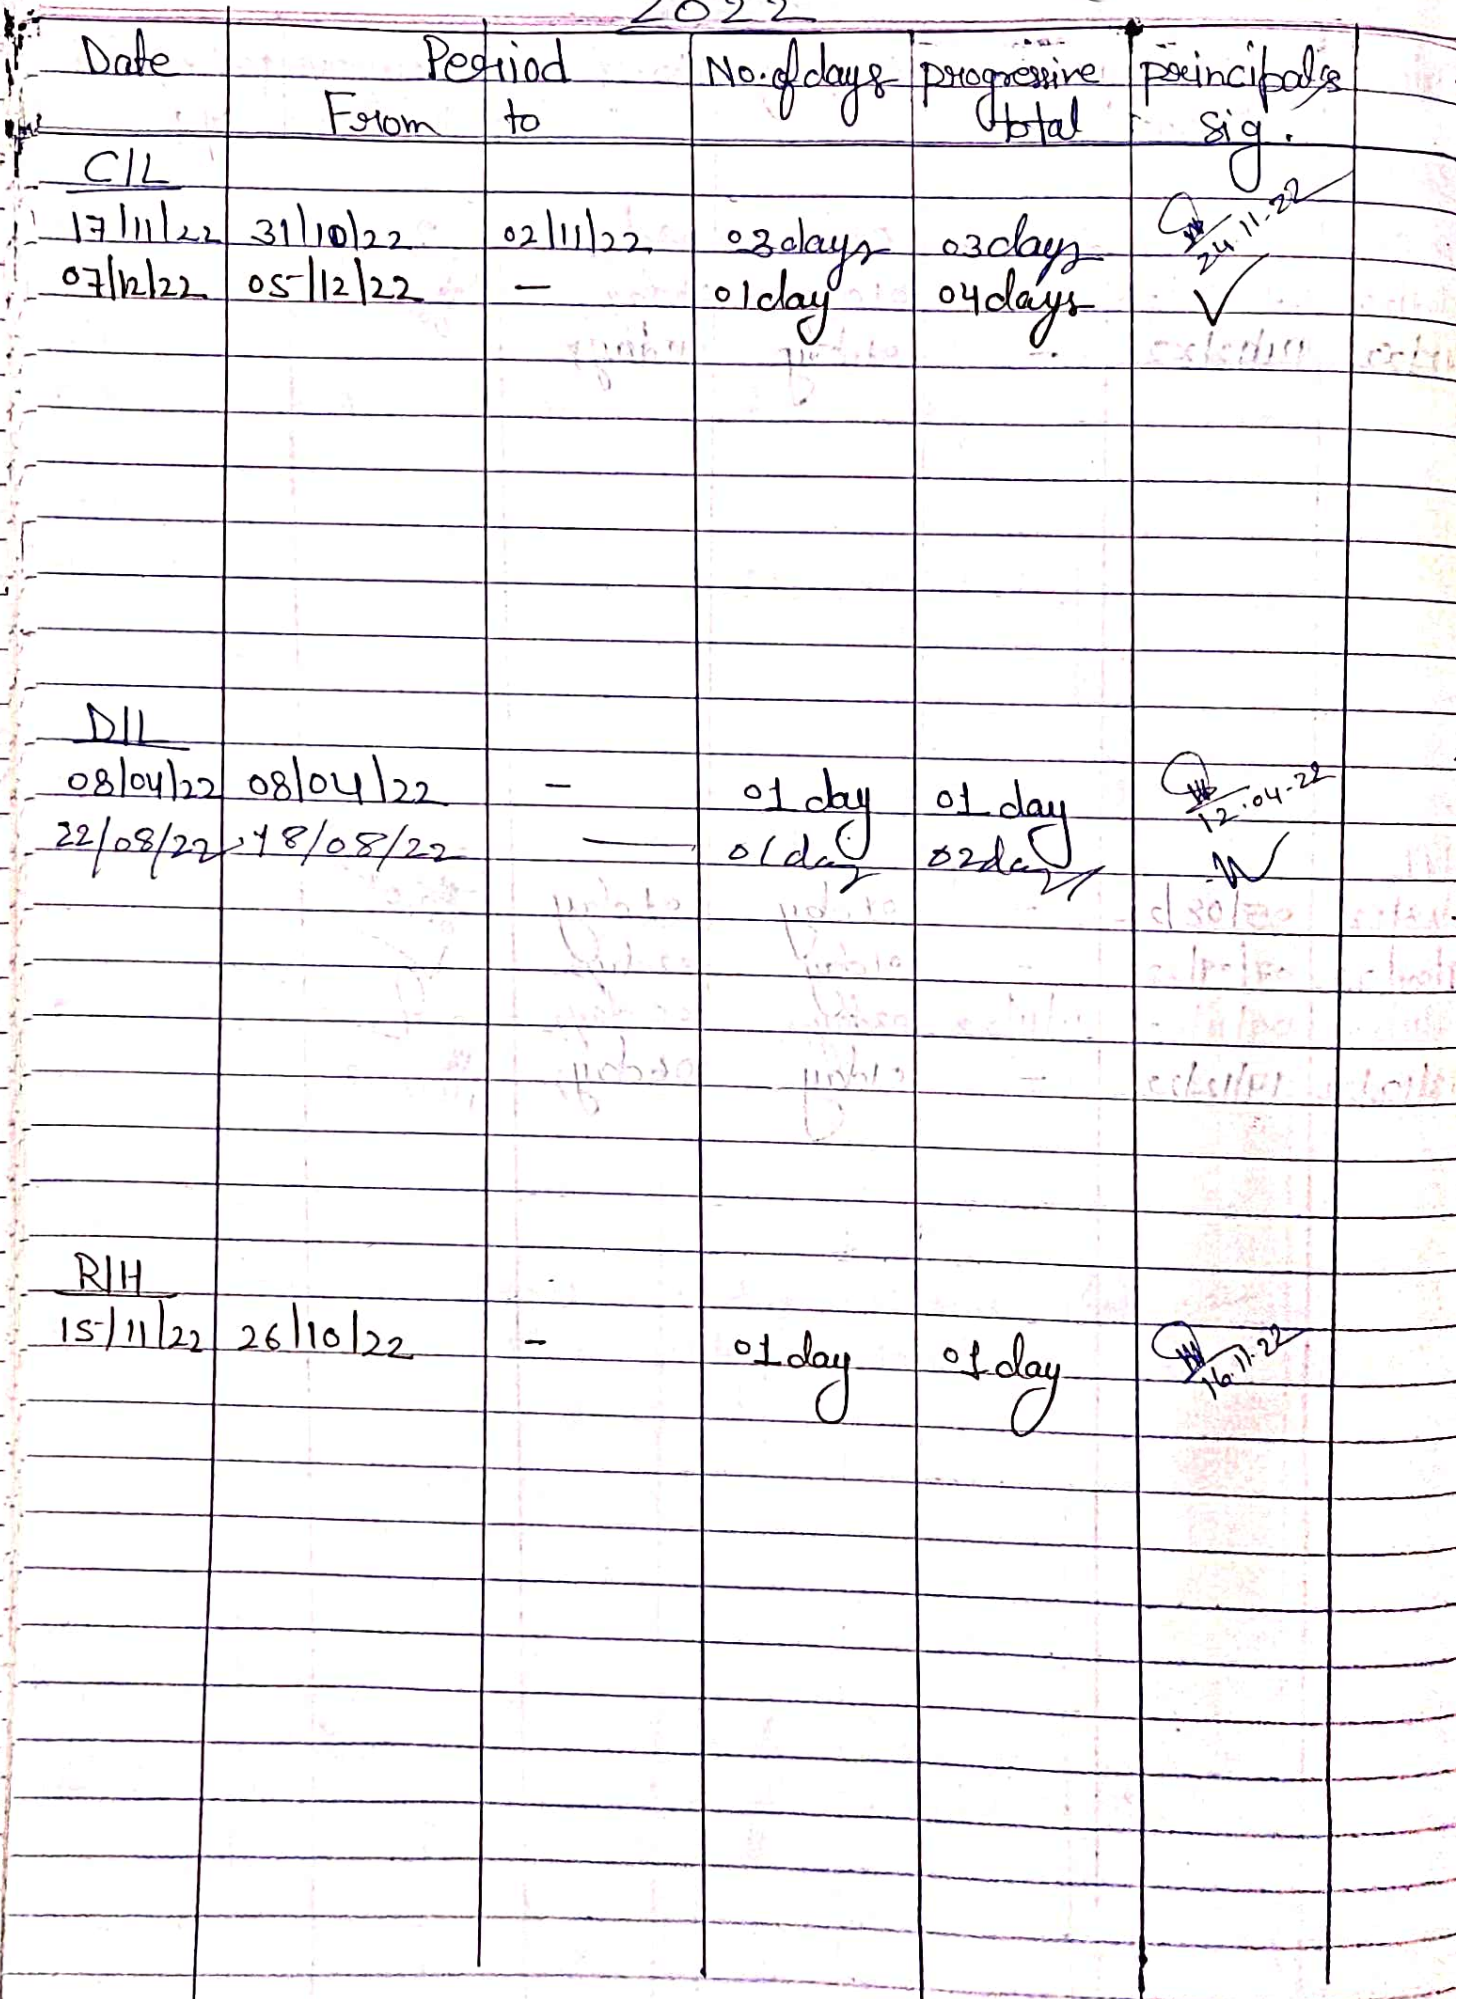 2022
Date Period No. of days progressive principal's
From to total sig.
C/L
17/11/22 31/10/22 02/11/22 03days 03days 24.11.22
07/12/22 05/12/22 - 01day 04days
D/L
08/04/22 08/04/22 - 01 day 01 day 12.04.22
22/08/22 18/08/22 — 01day 02days
R/H
15/11/22 26/10/22 - 01day 01day 16.11.22